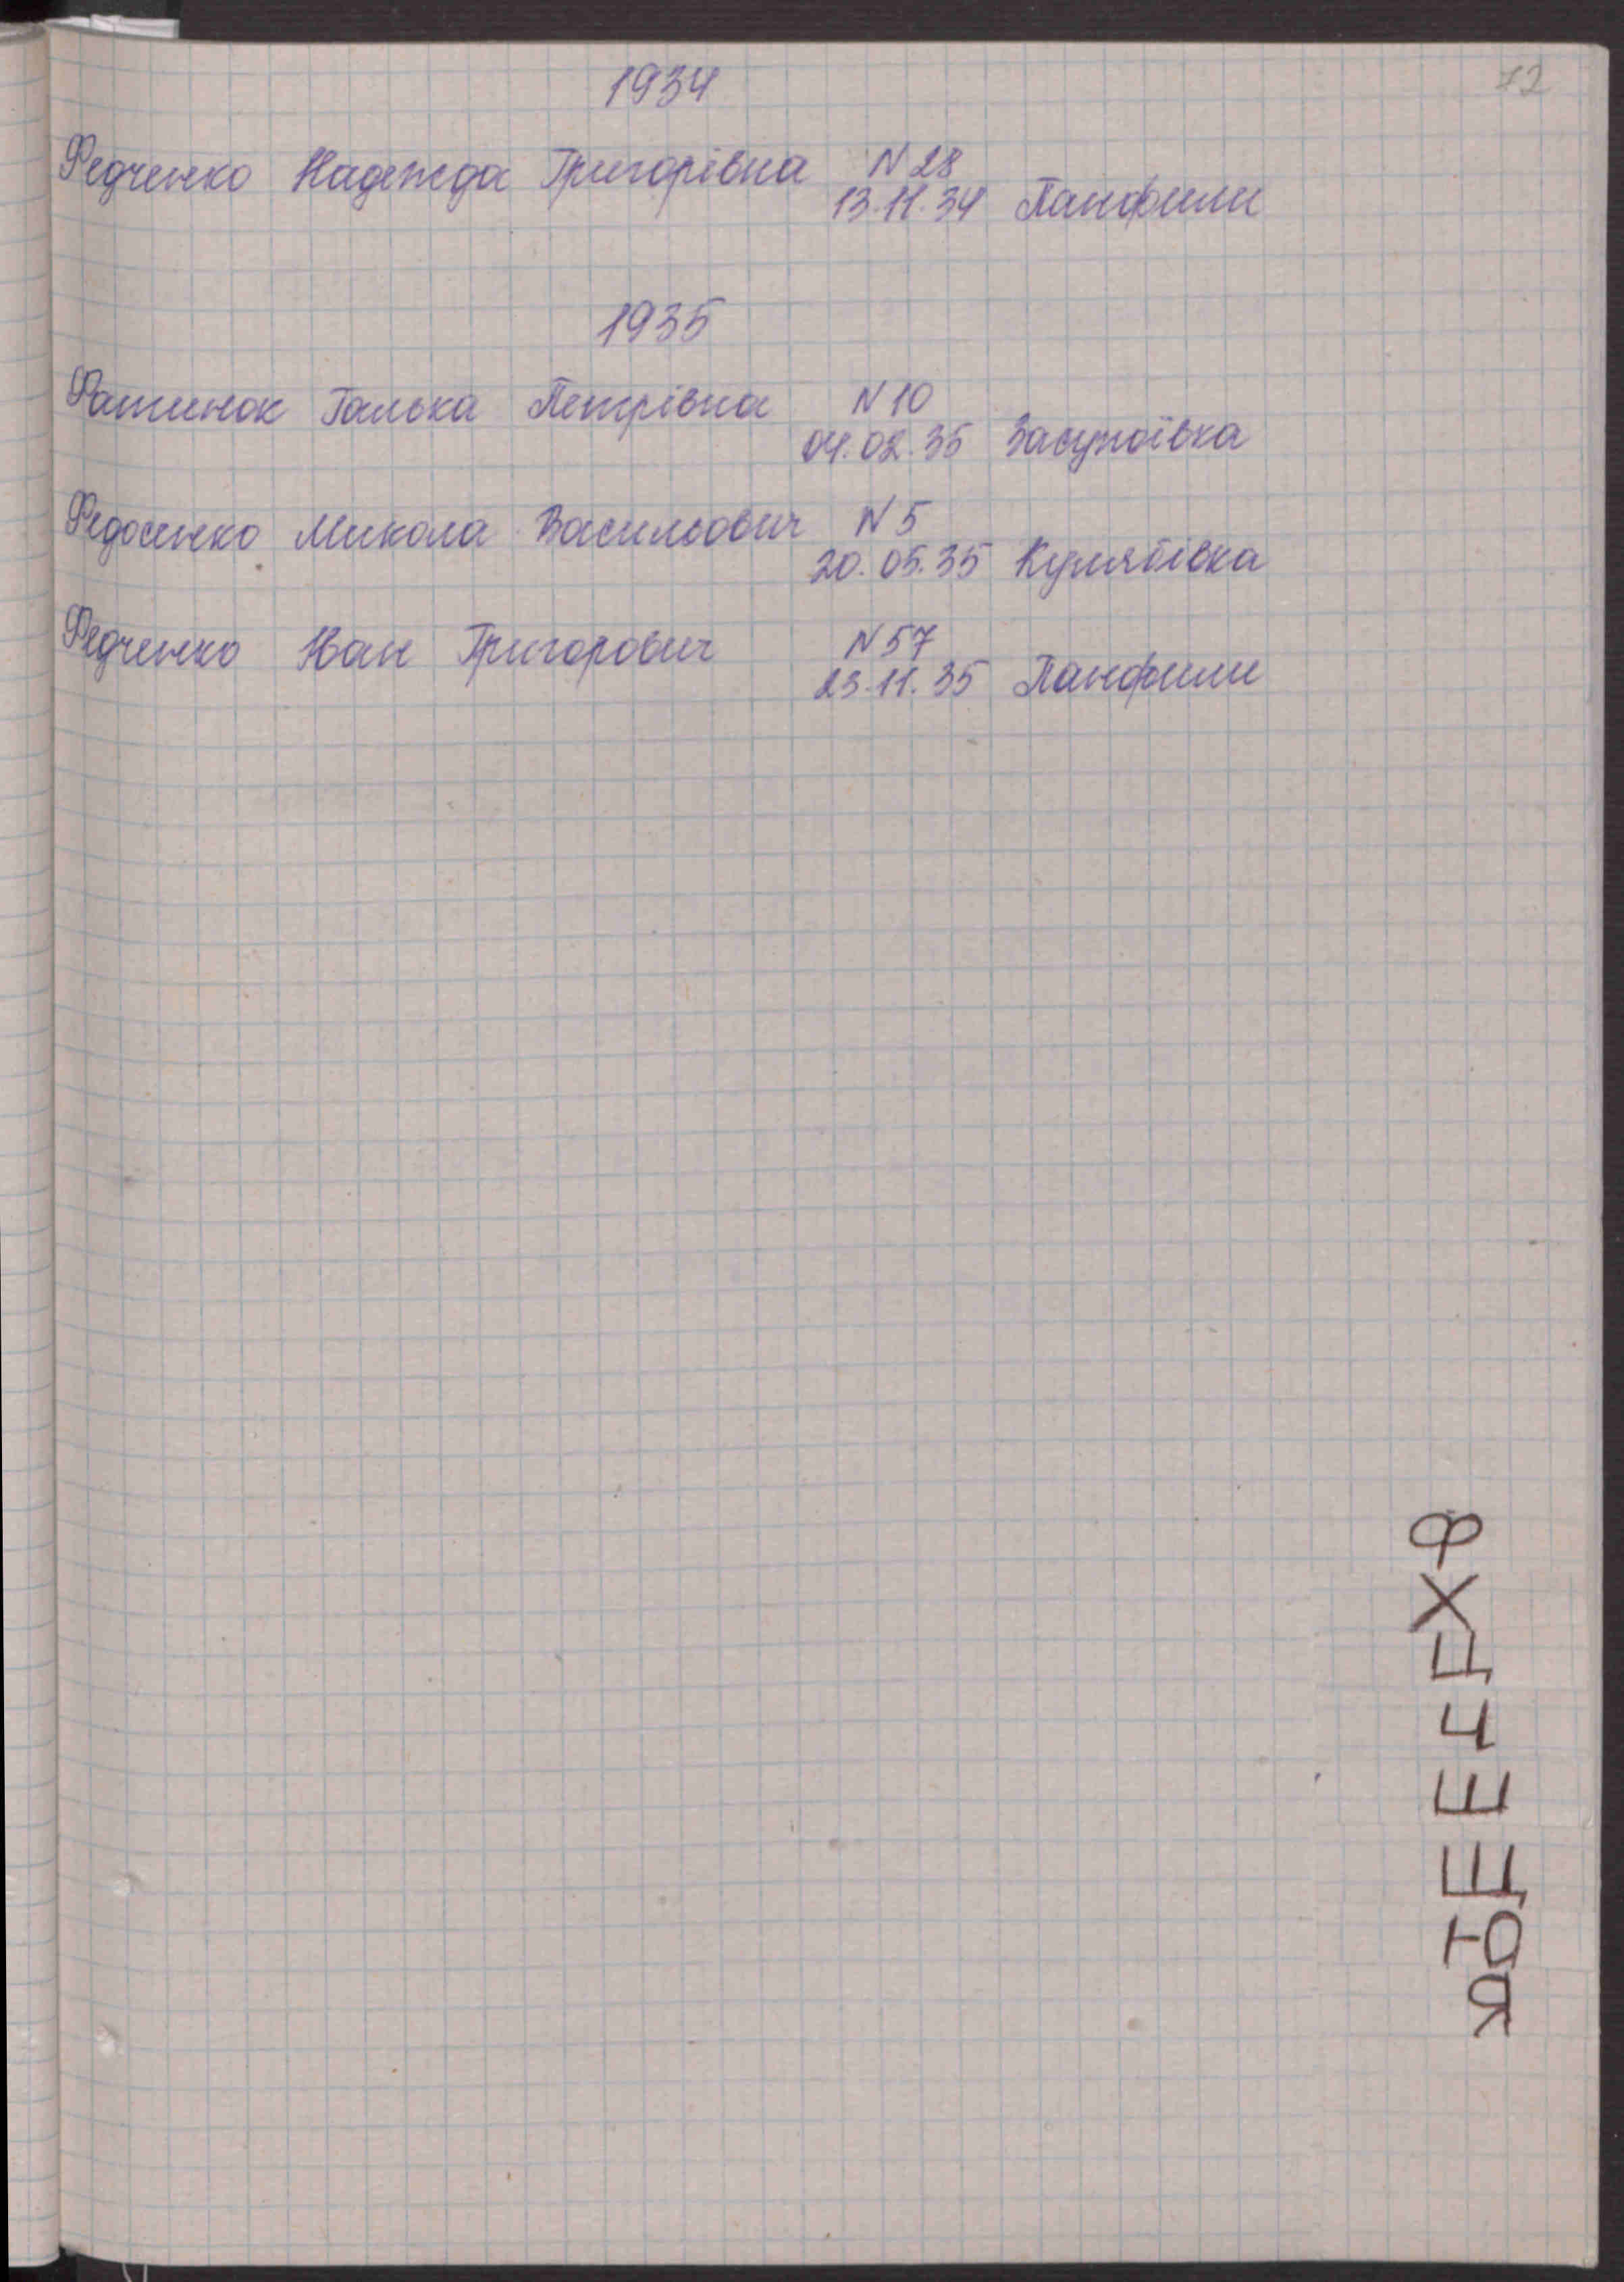 72
1934
Федченко Надежда Григорівна N 28
13.11.34 Панфили
1935
Фатинок Галька Петрівна N 10
04.02.35 Засупоївка
Федосенко Микола Васильович N 5
20.05.35 Кулябівка
Федченко Іван Григорович N 57
23.11.35 Панфили
Ф
Х
Ц
Ч
Ш
Щ
Ю
Я